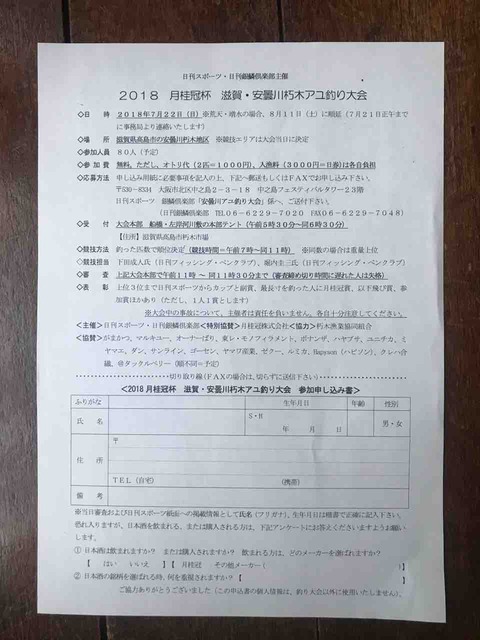 日刊スポーツ・日刊銀鱗倶楽部主催
2018 月桂冠杯 滋賀・安曇川朽木アユ釣り大会
◇日 時 2018年7月22日(日)※荒天・増水の場合、8月11日(土)に順延(7月21日正午までに事務局より連絡いたします)
◇場 所 滋賀県高島市の安曇川朽木地区 ※競技エリアは大会当日に決定
◇参加人員 80人(予定)
◇参加費 無料。ただし、オトリ代(2匹=1000円)、入漁料(3000円=日券)は各自負担
◇応募方法 申し込み用紙に必要事項を記入の上、下記へ郵送もしくはFAXでお申し込み下さい。
〒530-8334 大阪市北区中之島2-3-18 中之島フェスティバルタワー23階
日刊スポーツ 銀鱗倶楽部「安曇川アユ釣り大会」係へ、ご送付下さい。
(日刊銀鱗倶楽部 TEL06-6229-7020 FAX06-6229-7048)
◇受 付 大会本部 船橋・左岸河川敷の本部テント(午前5時30分~同6時30分)
【住所】滋賀県高島市朽木市場
◇競技方法 釣った匹数で順位決定(競技時間=午前7時~同11時) ※同数の場合は重量上位
◇競技担当 下田成人氏(日刊フィッシング・ペンクラブ)、堀内圭三氏(日刊フィッシング・ペンクラブ)
◇審 査 上記大会本部で午前11時~同11時30分まで(審査締め切り時間に遅れた人は失格)
◇表 彰 上位3位まで日刊スポーツからカップと副賞、最長寸を釣った人に月桂冠賞、以下飛び賞、参加賞ほかあり(ただし、1人1賞とします)
※大会中の事故について、主催者は責任を負いません。各自十分注意してください。
<主催>日刊スポーツ・日刊銀鱗倶楽部<特別協賛>月桂冠株式会社<協力>朽木漁業協同組合
<協賛>がまかつ、マルキユー、オーナーばり、東レ・モノフィラメント、ボナンザ、ハヤブサ、ユニチカ、ミヤマエ、ダン、サンライン、ゴーセン、ヤマワ産業、ゼクー、ルミカ、Hapyson(ハピソン)、クレハ合繊、@タックルベリー(順不同=予定)
切り取り線(FAXの場合は、切らずに送信下さい)
<2018 月桂冠杯 滋賀・安曇川朽木アユ釣り大会 参加申し込み書>
ふりがな 生年月日 年齢 性別
氏 名 S・H 年 月 日 男・女
住 所 〒
TEL(自宅) (携帯)
備 考
※当日審査および日刊スポーツ紙面への掲載情報として氏名(フリガナ)、生年月日は楷書で正確に記入下さい。
恐れ入りますが、日本酒を飲まれる、または購入される方は、下記アンケートにお答えくださいますようお願いします。
① 日本酒は飲まれますか? または購入されますか? 飲まれる方は、どのメーカーを選ばれますか?
【 はい いいえ 】 【 月桂冠 その他メーカー( 】
② 日本酒の銘柄を選ばれる時、何を重視されますか?【 】
ご協力ありがとうございました(この申込書の個人情報は、釣り大会以外に使用いたしません)。